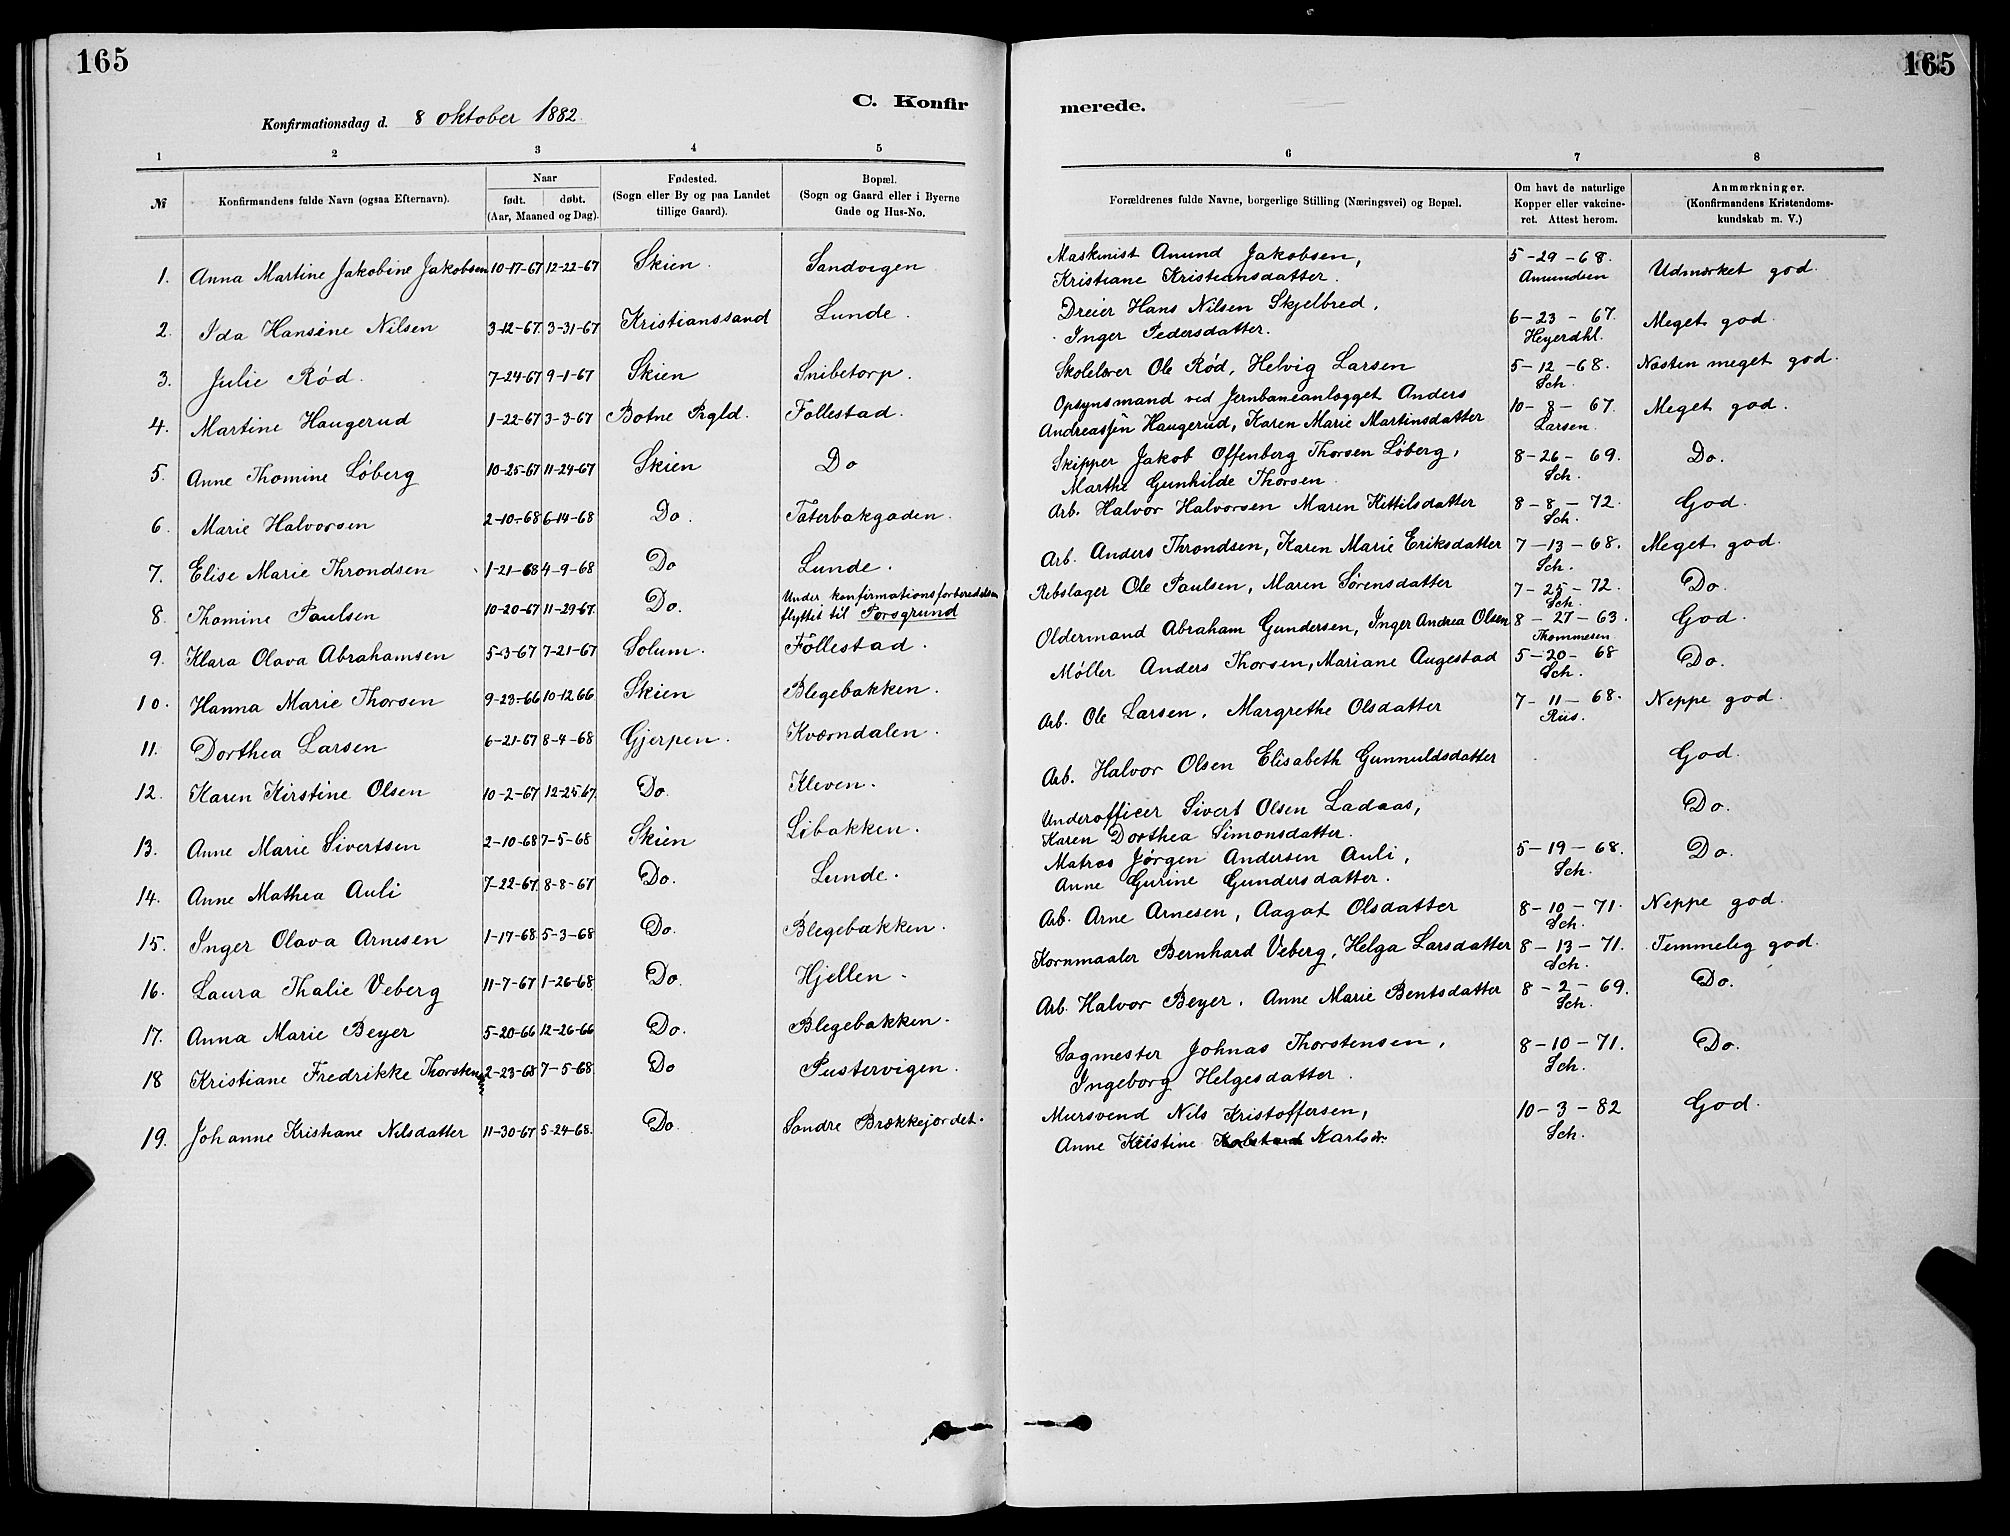 165
C. Konfir
Konfirmationsdag d. 8 oktober 1882.
1 2 3 4 5
№ Konfirmandens fulde Navn (ogsaa Efternavn). Naar født. døbt. (Aar, Maaned og Dag). Fødested. (Sogn eller By og paa Landet tillige Gaard). Bopæl. (Sogn og Gaard eller i Byerne Gade og Hus-No.
1. Anna Martine Jakobine Jakobsen 10-17-67 12-22-67 Skien. Sandvigen
2. Ida Hansine Nilsen 3-12-67. 3-31-67 Kristianssand Lunde.
3. Julie Rød. 7-24-67 9-1-67 Skien Snibetorp.
4. Martine Haugerud 1-22-67 3-3-67 Botne Prgld. Follestad.
5. Anne Thomine Løberg 10-25-67 11-24-67 Skien Do
6. Marie Halvorsen 2-10-68 6-14-68 Do. Taterbakgaden.
7. Elise Marie Throndsen 1-21-68 4-9-68 Do Lunde.
8. Thomine Paulsen 10-20-67 11-29-67. Do. Under konfirmationsforberedelsen
flyttet til Porsgrund
9. Klara Olava Abrahamsen 5-3-67 7-21-67 Solum. Follestad.
10. Hanna Marie Thorsen 9-23-66 10-12 66 Skien Blegebakken.
11. Dorthea Larsen 6-21-67 8-4-68 Gjerpen. Kværndalen.
12. Karen Kirstine Olsen 10-2-67 12-25 67. Do. Kleven.
13. Anne Marie Sivertsen 2-10-68 7-5-68 Skien Libakken.
14. Anne Mathea Auli 7-22-67. 8-8-67 Do. Lunde.
15. Inger Olava Arnesen 1-17-68 5-3-68 Do. Blegebakken.
16. Laura Thalie Veberg 11-7-67 1-26-68 Do. Hjellen.
17. Anna Marie Beyer 5-20-66 12-26-66 Do. Blegebakken.
18 Kristiane Fredrikke Thorstensen 2-23-68 7-5-68 Do Pustervigen.
19. Johanne Kristiane Nilsdatter 11-30-67 5-24-68. Do. Søndre Brækkejordet.
165
merede.
6 7 8
Forældrenes fulde Navne, borgerlige Stilling (Næringsvei) og Bopæl. Om havt de naturlige Kopper eller vakcineret. Attest herom. Anmærkninger. (Konfirmandens Kristendomskundskab m. V.)
Maskinist Amund Jakobsen, 5-29-68.
Kristiane Kristiansdatter. Amundsen Udmærket god.
Dreier Hans Nilsen Skjelbred, 6-23-67. Meget god.
Inger Pedersdatter. Heyerdhl.
Skolelærer Ole Rød, Helvig Larsen 5-12-68. Næsten meget god.
Sch.
Opsynsmand ved Jernbaneanlægget Anders 10-8-67. Meget god.
Andreassen Haugerud, Karen Marie Martinsdatter Larsen.
Skipper Jakob Offenberg Thorsen Løberg, 8-26-69. Do.
Marthe Gunhilde Thorsen. Sch.
Arb. Halvor Halvorsen Maren Kittilsdatter 8-8-72. God.
Sch.
Arb. Anders Throndsen, Karen Marie Eriksdatter 7-13-68. Meget god.
Sch.
Rebslager Ole Paulsen, Maren Sørensdatter 7-25-72. Do.
Sch.
Oldermand Abraham Gundersen, Inger Andrea Olsen 8-27-63. God.
Thommesen
Møller Anders Thorsen, Mariane Augestad 5-20-68 Do.
Sch.
Arb. Ole Larsen, Margrethe Olsdatter 7-11-68. Neppe god.
Riis.
Arb. Halvor Olsen Elisabeth Gunnuldsdatter God.
Underofficer Sivert Olsen Ladaas, Do.
Karen Dorthea Simonsdatter.
Matros Jørgen Andersen Auli, 5-19-68. Do.
Anne Gurine Gundersdatter. Sch.
Arb. Arne Arnesen, Aagot Olsdatter 8-10-71. Neppe god.
Sch.
Kornmaaler Bernhard Veberg, Helga Larsdatter 8-13-71. Temmelig god.
Sch.
Arb. Halvor Beyer, Anne Marie Bentsdatter 8-2-69. Do.
Sch.
Sagmester Johnas Thorstensen, 8-10-71. Do.
Ingeborg Helgesdatter. Sch.
Mursvend Nils Kristoffersen, 10-3-82 God.
Anne Kristine Karlsdr. Sch.